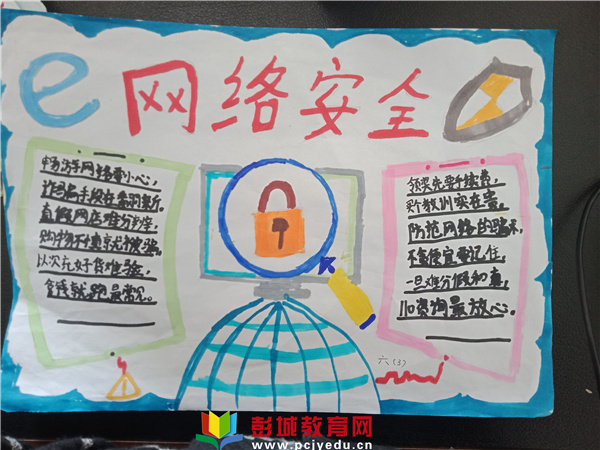 e 网络安全
畅游网络要小心,
诈骗手段在翻新。
真假网店难分
购物不被骗。
以次充好货难验,
钱就跑最常见。
领奖先要手续费,
教训实在
防范网络的骗术,
不贪便宜要记住,
一旦难分假和真,
110咨询最放心。
六(3)
彭城教育网
www.pcjyedu.cn